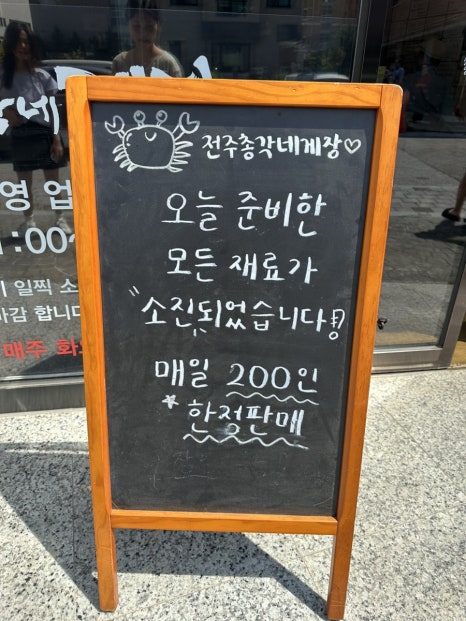 전주총각네게장♡
오늘 준비한
모든 재료가
"소진되었습니다!!
매일 200인
*한정판매
영 업
:00~
일찍 소
마감 합니다
매주 화